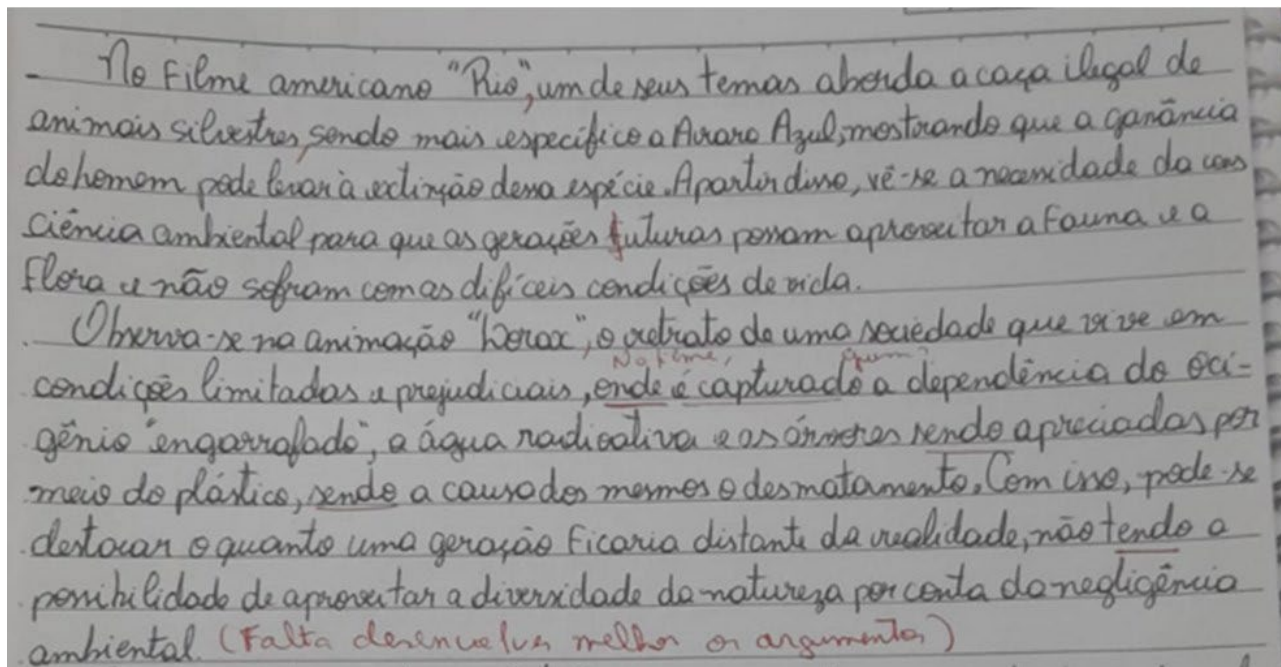 No Filme americano "Rio", um de seus temas aborda a caça ilegal de
animais silvestres, sendo mais especifico a Arara Azul, mostrando que a ganância
do homem pode levar à extinção dessa espécie. Apartir disso, vê-se a necessidade da cons
ciência ambiental para que as gerações futuras possam aproveitar a Fauna e a
Flora e não sofram com as difíceis condições de vida.
Observa-se na animação "Lorax", o retrato de uma sociedade que vive em
No filme,
condições limitadas e prejudiciais, onde é capturado a dependência do oci-
gênio "engarrafado", a água radioativa e as árvores sendo apreciadas por
meio do plástico, sendo a causa dos mesmos o desmatamento. Com isso, pode-se
destacar o quanto uma geração ficaria distante da realidade, não tendo a
possibilidade de aproveitar a diversidade da natureza por conta da negligência
ambiental. (Falta desenvolver melhor os argumentos)